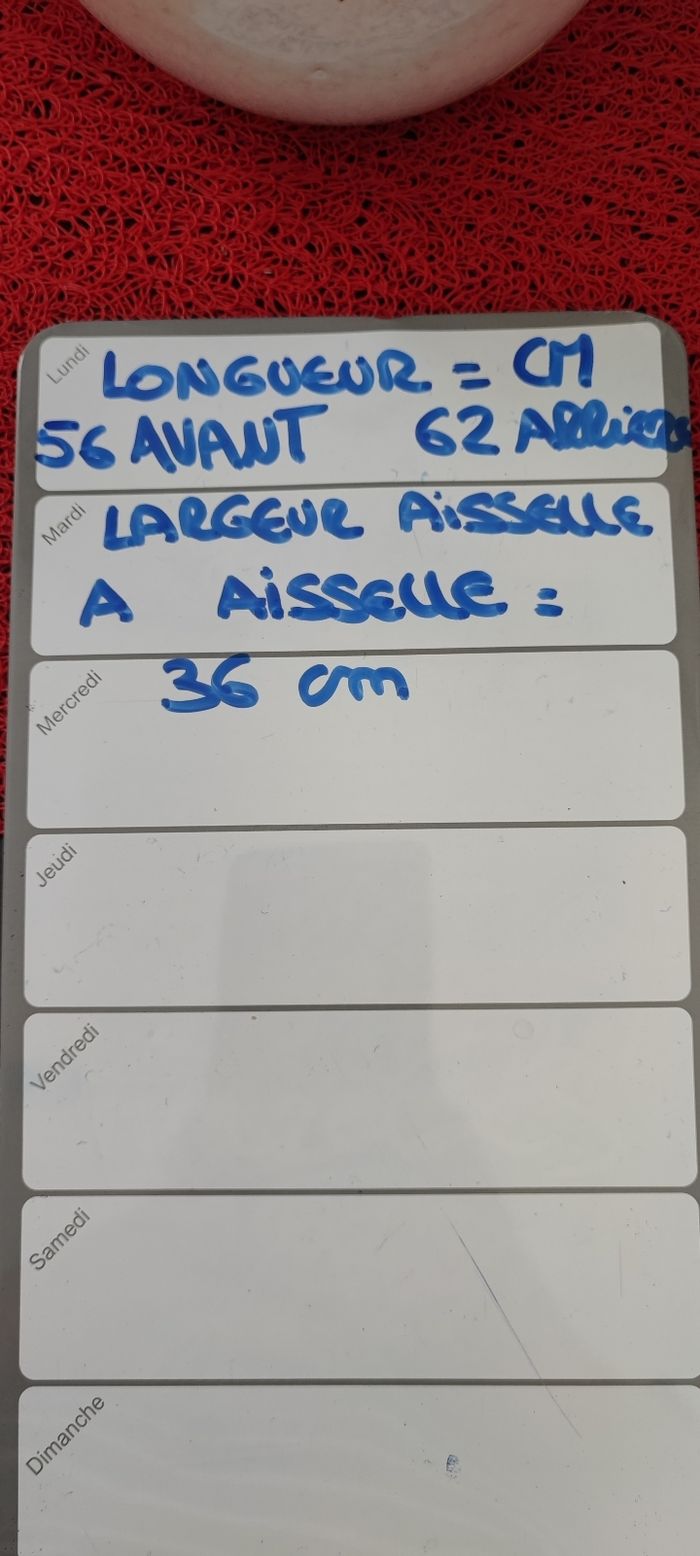 Lundi
LONGUEUR = CM
56 AVANT 62 ARRIERE
Mardi
LARGEUR AiSSELLE
A AiSSELLE =
Mercredi
36 cm
Jeudi
Vendredi
Samedi
Dimanche